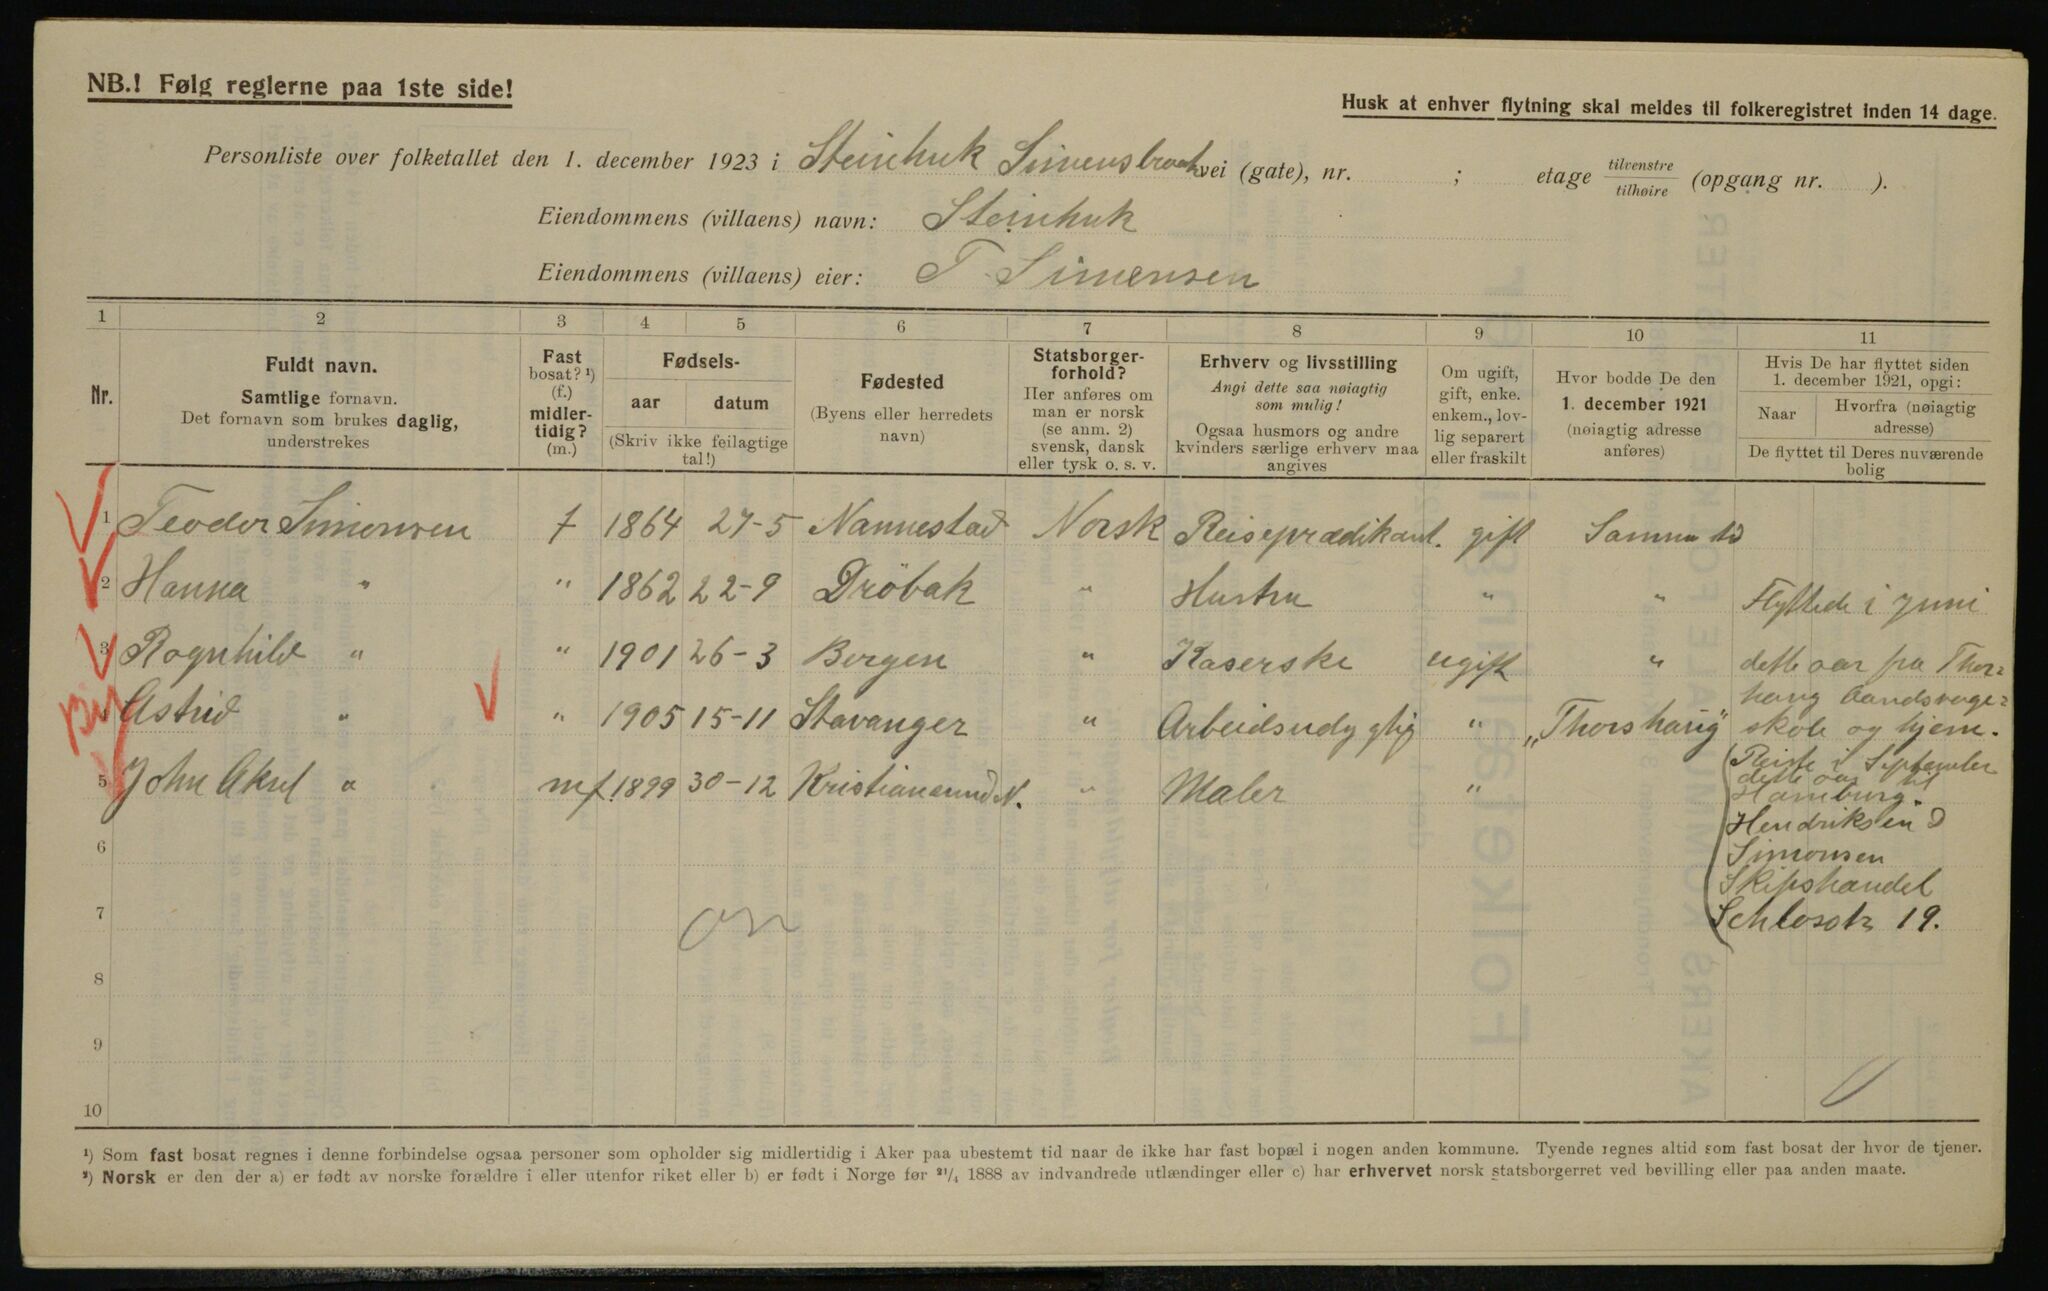 NB.! Følg reglerne paa 1ste side!
Husk at enhver flytning skal meldes til folkeregistret inden 14 dage.
Personliste over folketallet den 1. december 1923 i Steinhuk Simensbraatvei (gate), nr. ; etage tilvenstre/tilhøire (opgang nr. ).
Eiendommens (villaens) navn: Steinhuk
Eiendommens (villaens) eier: T. Simensen
1 2 3 4 5 6 7 8 9 10 11
Nr.
Fuldt navn.
Samtlige fornavn.
Det fornavn som brukes daglig,
understrekes
Fast
bosat? ¹)
(f.)
midler-
tidig?
(m.)
Fødsels-
aar datum
(Skriv ikke feilagtige
tal!)
Fødested
(Byens eller herredets
navn)
Statsborger-
forhold?
Her anføres om
man er norsk
(se anm. 2)
svensk, dansk
eller tysk o. s. v.
Erhverv og livsstilling
Angi dette saa nøiagtig
som mulig!
Ogsaa husmors og andre
kvinders særlige erhverv maa
angives
Om ugift,
gift, enke.
enkem., lov-
lig separert
eller fraskilt
Hvor bodde De den
1. december 1921
(nøiagtig adresse
anføres)
Hvis De har flyttet siden
1. december 1921, opgi:
Naar Hvorfra (nøiagtig
adresse)
De flyttet til Deres nuværende
bolig
1 Teodor Simonsen f 1864 27-5 Nannestad Norsk Reiseprædikant. gift Samme sted
2 Hanna " " 1862 22-9 Drøbak " Hustru " " Flyttede i Juni
3 Ragnhild " " 1901 26-3 Bergen " Kaserske ugift " dette aar fra Thors=
haug Aandsvage=
By 4 Astrid " " 1905 15-11 Stavanger " Arbeidsudygtig " "Thorshaug" skole og hjem.
5 John Aksel " mf. 1899 30-12 Kristiansund N. " Maler "
Reiste i September
dette aar til
Hamburg.
Hendriksen &
Simonsen
Skipshandel
Schlosstr 19.
6
7
8
9
10
¹) Som fast bosat regnes i denne forbindelse ogsaa personer som opholder sig midlertidig i Aker paa ubestemt tid naar de ikke har fast bopæl i nogen anden kommune. Tyende regnes altid som fast bosat der hvor de tjener.
²) Norsk er den der a) er født av norske forældre i eller utenfor riket eller b) er født i Norge før ²¹/₄ 1888 av indvandrede utlændinger eller c) har erhvervet norsk statsborgerret ved bevilling eller paa anden maate.